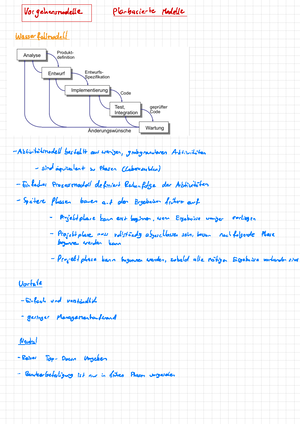 Vorgehensmodelle Planbasierte Modelle
Wasserfallmodell
Analyse
Produkt-
definition
Entwurf
Entwurfs-
Spezifikation
Implementierung
Code
Test,
Integration
geprüfter
Code
Wartung
Änderungswünsche
- Aktivitätsmodell besteht aus wenigen, grobgranularen Aktivitäten
- sind äquivalent zu Phasen (Lebenszyklus)
- Einfaches Prozessmodell definiert Reihenfolge der Aktivitäten
- Spätere Phasen bauen auf den Ergebnissen früher auf
- Projektphase kann erst beginnen, wenn Ergebnisse voriger vorliegen
- Projektphase muss vollständig abgeschlossen sein, bevor nachfolgende Phase
begonnen werden kann
- Projektphase kann begonnen werden, sobald alle nötigen Ergebnisse vorhanden sind
Vorteile
- Einfach und verständlich
- geringer Managementaufwand
- Reiner Top-Down Vorgehen
- Benutzerbeteiligung ist nur in frühen Phasen vorgesehen